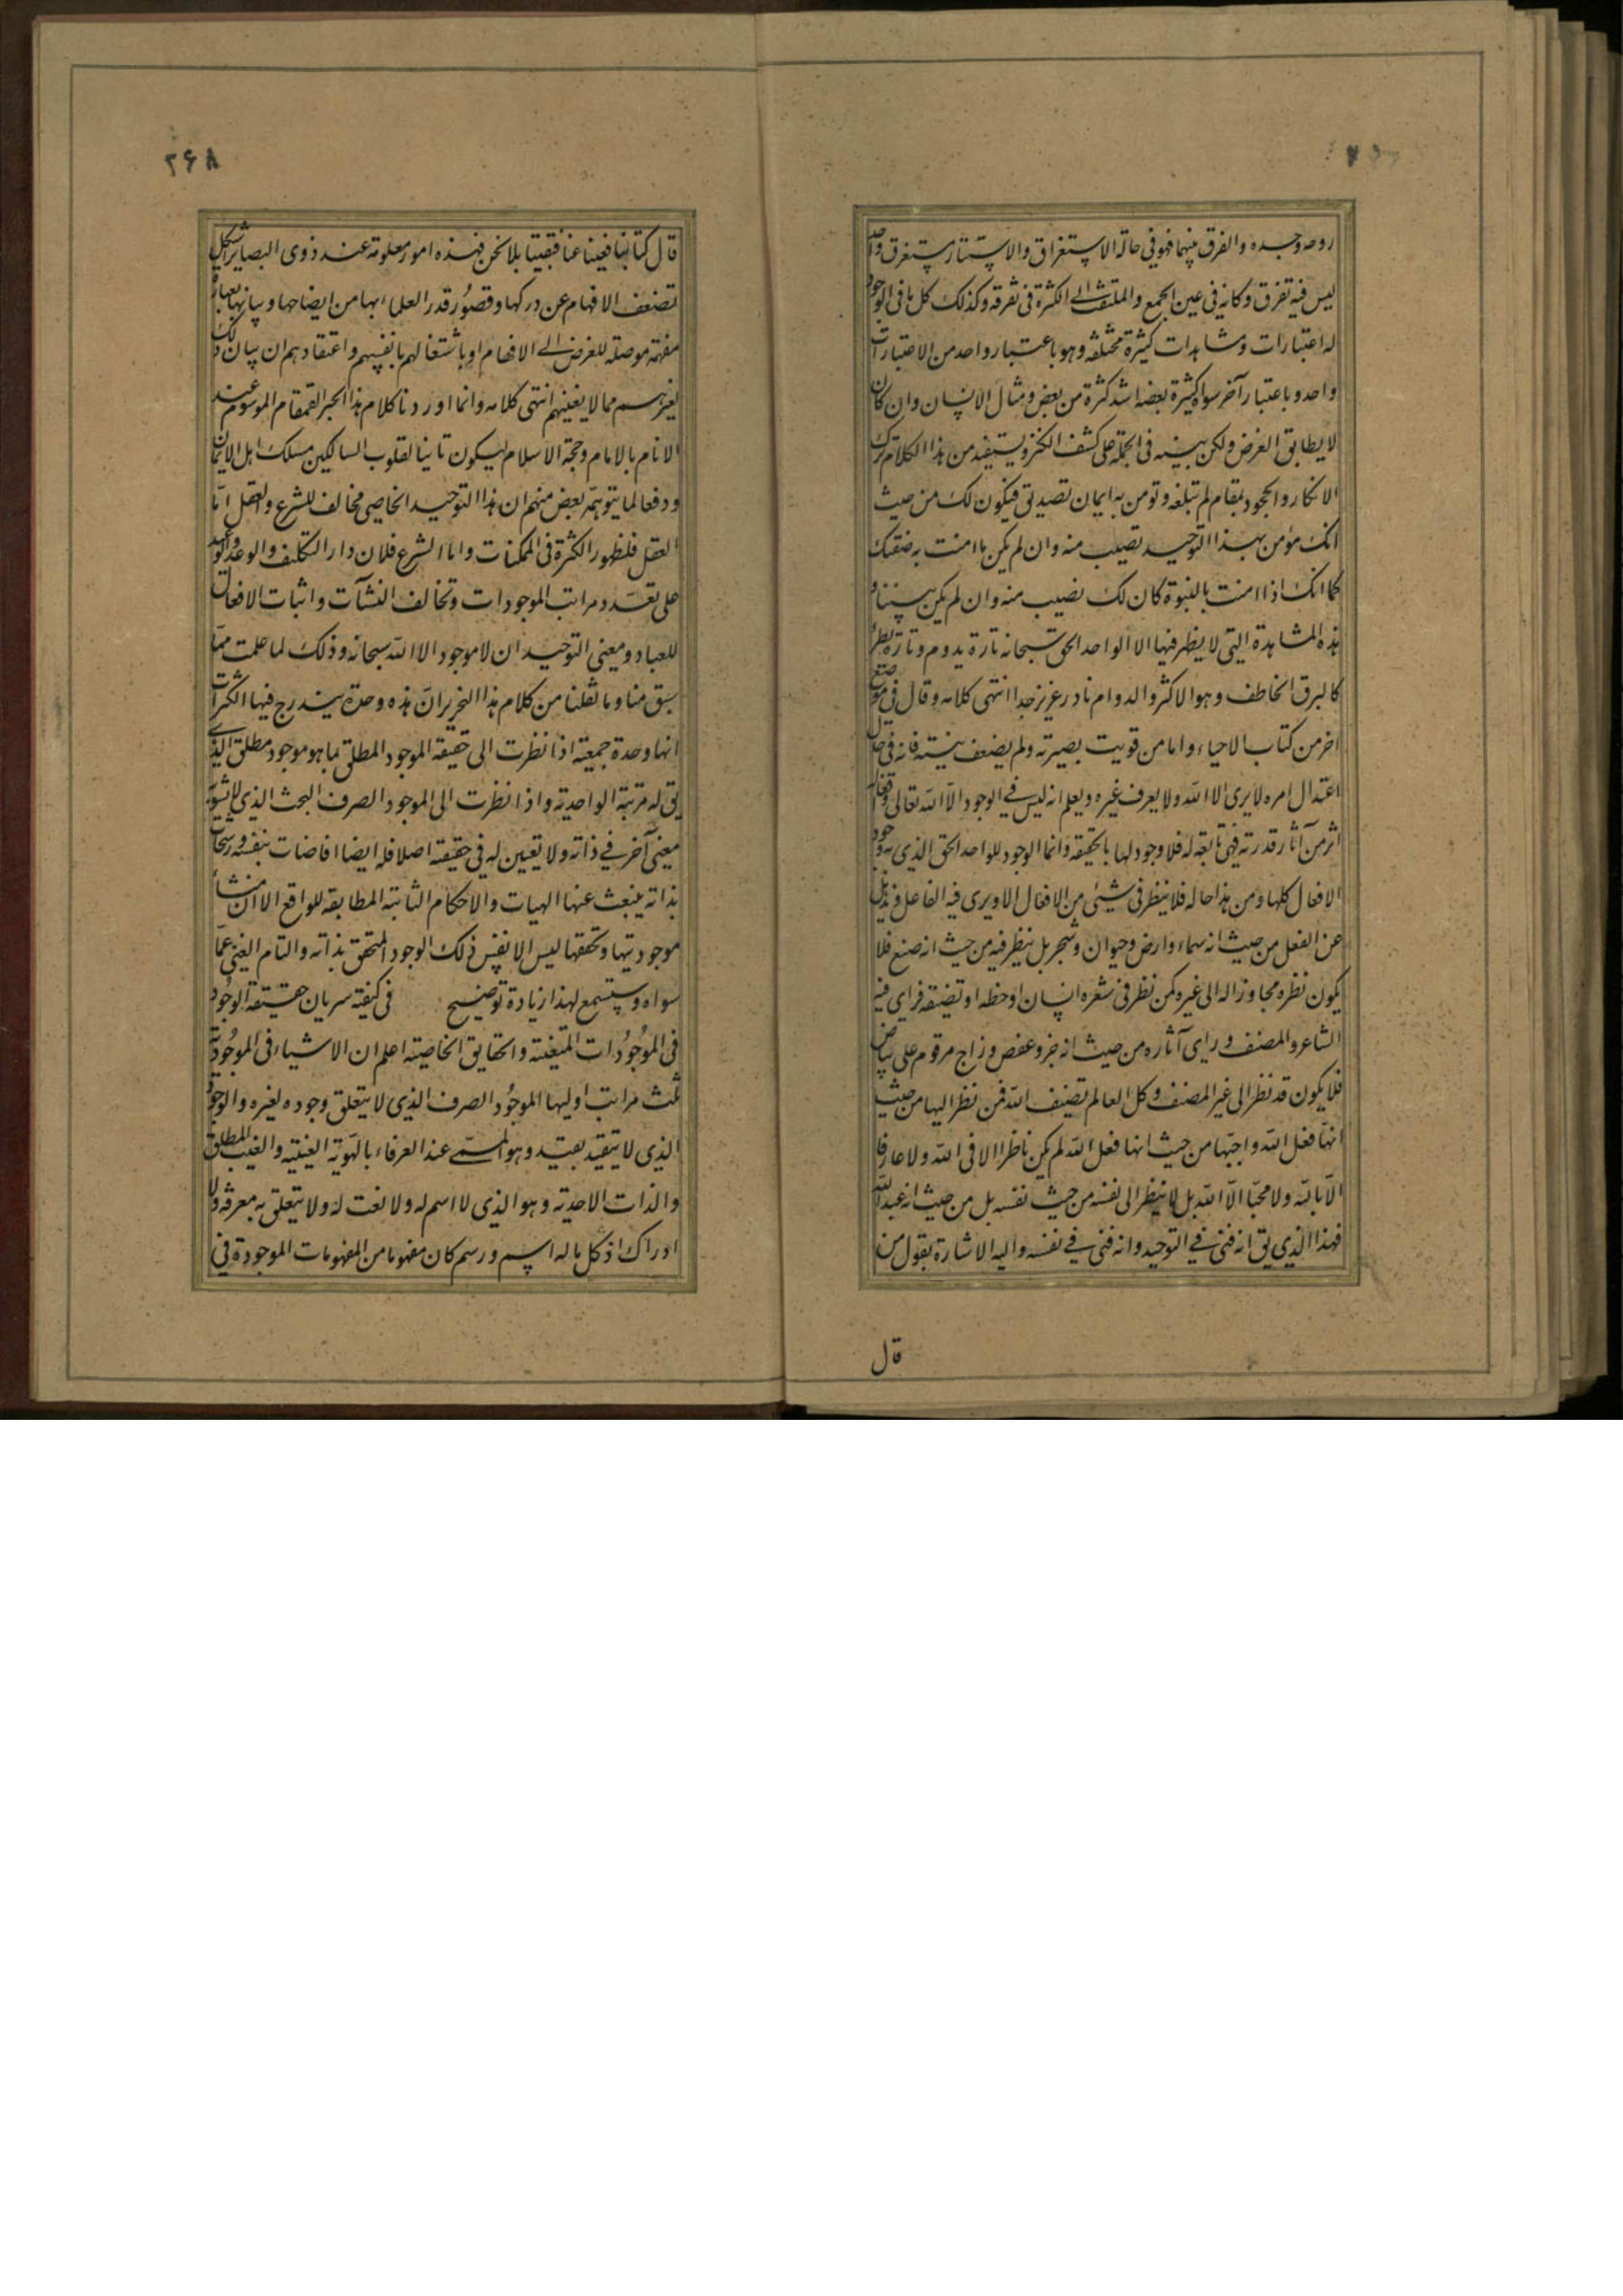 روحه وجسده والفرق بينهما فهو في حالة الاستغراق والاستتار مستغرق واحد
ليس فيه تفرق وكانه في عين الجمع والملتفت الى الكثرة في تفرقه وكذلك كل ما في الوجود
له اعتبارات ومشاهدات كثيرة مختلفه وهو باعتبار واحد من الاعتبارات
واحد وباعتبار آخر سواه كثيرة بعضه اشد كثرة من بعض ومثال الانسان وان كان
لا يطابق الغرض ولكن ينبه في الجملة على كشف الكنز ويستفيد من هذا الكلام ترك
الانكار والجحود بمقام لم تبلغه وتومن به ايمان تصديق فيكون لك من حيث
انك مؤمن بهذا التوحيد نصيب منه وان لم يكن ما امنت به صفتك
كما انك اذا امنت بالنبوة كان لك نصيب منه وان لم يكن نبينا و
هذه المشاهدة التي لا يظهر فيها الا الواحد الحق سبحانه تارة يدوم وتارة يطرأ
كالبرق الخاطف وهو الاكثر والدوام نادر عزيز جدا انتهى كلامه وقال في موضع
اخر من كتاب الاحياء واما من قويت بصيرته ولم يضعف نيته فانه في حال
اعتدال امره لا يرى الا الله ولا يعرف غيره ويعلم انه ليس في الوجود الا الله تعالى وافعاله
اثر من آثار قدرته فهي تابعة له فلا وجود لها بالحقيقه وانما الوجود للواحد الحق الذي به وجود
الافعال كلها ومن هذا حاله فلا ينظر في شيئ من الافعال الا ويرى فيه الفاعل ويذهل
عن الفعل من حيث انه سماء وارض وحيوان وشجر بل ينظر فيه من حيث انه صنع فلا
يكون نظره مجاوزا له الى غيره كمن نظر في شعره انسان او خطه او تصنيفه فراى فيه
الشاعر والمصنف وراى آثاره من حيث انه حبر وعفص وزاج مرقوم على بياض
فلا يكون قد نظر الى غير المصنف وكل العالم تصنيف الله فمن نظر اليها من حيث
انها فعل الله واحبها من حيث انها فعل الله لم يكن ناظرا الا في الله ولا عارفا
الا بالله ولا محبا الا الله بل لا ينظر الى نفسه من حيث نفسه بل من حيث انه عبد الله
فهذا الذي يق انه فنى في التوحيد وانه فنى في نفسه واليه الاشارة بقول من
قال
٢۶٨
قال كنا بنا فغبنا عنا فبقينا بلا نحن فهذه امور معلومة عند ذوى البصاير اشكل
تضعف الافهام عن دركها وقصور قدر العلماء بها من ايضاحها وبيانها بعبارة
مفهمة موصلة للغرض الى الافهام او باشتغالهم بانفسهم واعتقادهم ان بيان ذلك
لغيرهم مما لا يعنيهم انتهى كلامه وانما اوردنا كلام هذا الحبر القمقام الموسوم عند
الانام بالامام وحجة الاسلام ليكون تانيسا لقلوب السالكين مسلك اهل الايمان
ودفعا لما يتوهمه بعض منهم ان هذا التوحيد الخاصي مخالف للشرع والعقل امّا
العقل فلظهور الكثرة في الممكنات واما الشرع فلان دار التكليف والوعد والوعيد
على تعدد مراتب الموجودات وتخالف النشآت واثبات الافعال
للعباد ومعنى التوحيد ان لا موجود الا الله سبحانه وذلك لما علمت ممّا
سبق منا وما نقلنا من كلام هذا النحرير انّ هذه وحدة يندرج فيها الكثرات
انها وحدة جمعية اذا نظرت الى حقيقة الموجود المطلق بما هو موجود مطلق الذي
يق له مرتبة الواحدية واذا نظرت الى الموجود الصرف البحث الذي لا يشوبه
معنى آخر في ذاته ولا تعين له في حقيقته اصلا فله ايضا افاضات بنفسه ورشحات
بذاته ينبعث عنها الهيات والاحكام الثابتة المطابقة للواقع الا ان منشأ
موجوديتها وتحققها ليس الا نفس ذلك الوجود المتحقق بذاته والتام الغنى عمّا
سواه وستسمع لهذا زيادة توضيح في كيفية سريان حقيقة الوجود
في الموجودات المتعينة والحقايق الخاصية اعلم ان الاشياء في الموجودية
ثلث مراتب اوليها الموجود الصرف الذي لا يتعلق وجوده لغيره والوجود
الذي لا يتقيد بقيد وهو المسمى عند العرفاء بالهوية الغيبية والغيب المطلق
والذات الاحدية وهو الذي لا اسم له ولا نعت له ولا يتعلق به معرفة ولا
ادراك اذ كل ما له اسم ورسم كان مفهوما من المفهومات الموجودة في